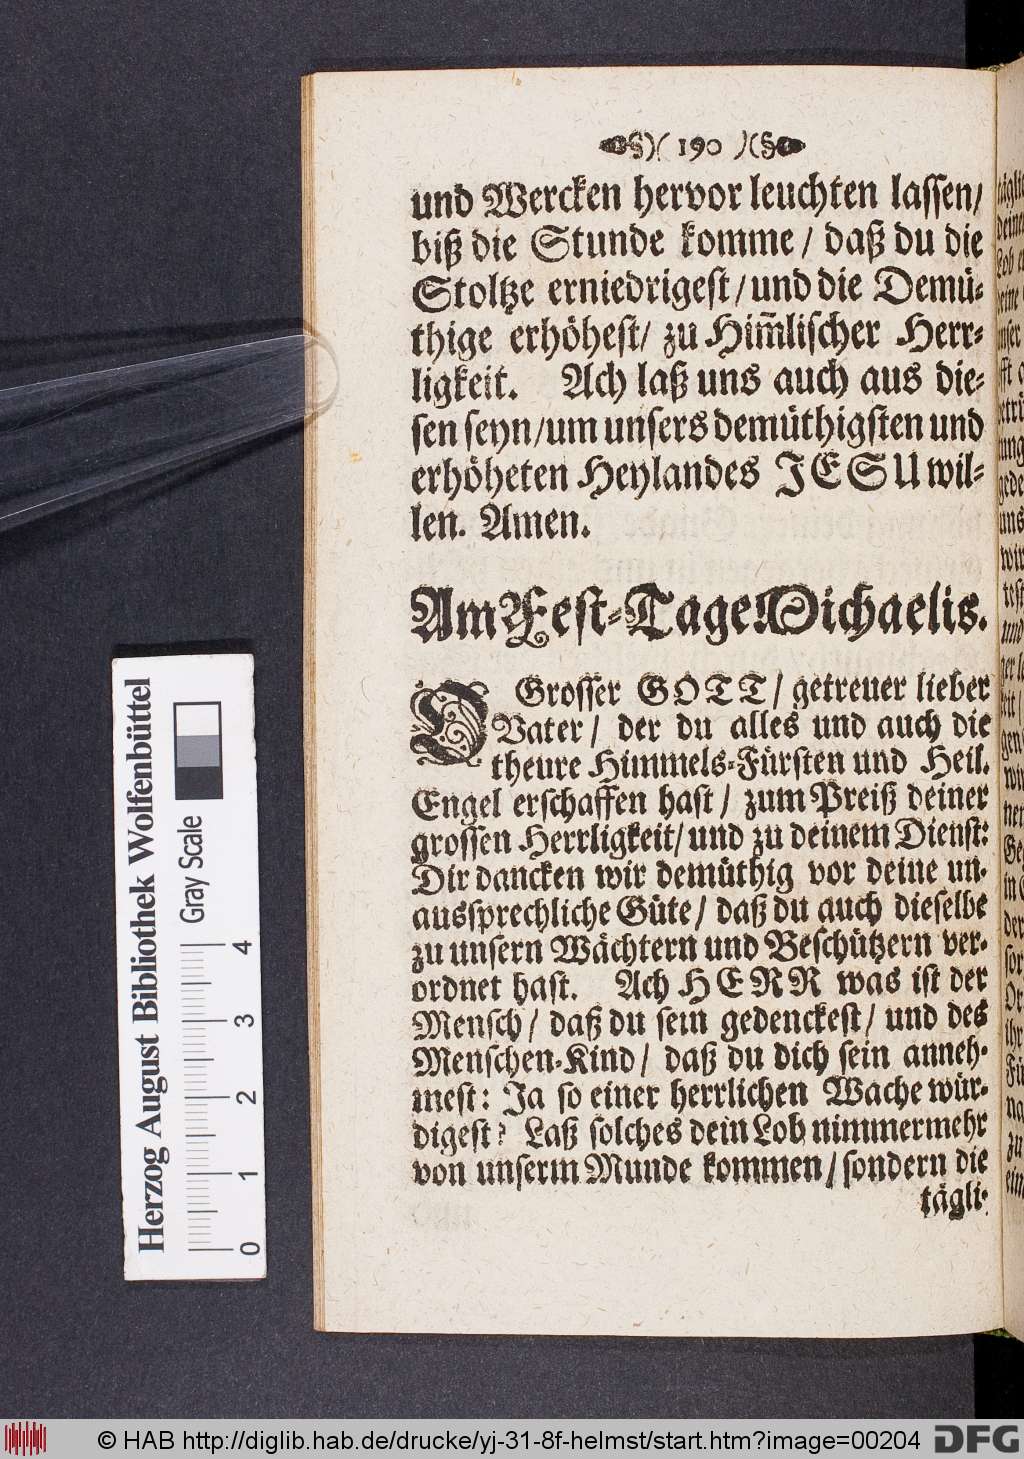 §)( 190 )(§
und Wercken hervor leuchten lassen/
biß die Stunde komme/ daß du die
Stoltze erniedrigest/ und die Demü-
thige erhöhest/ zu Him̃lischer Herr-
ligkeit. Ach laß uns auch aus die-
sen seyn/ um unsers demüthigsten und
erhöheten Heylandes JESU wil-
len. Amen.
Am Fest-Tage Michaelis.
O Grosser GOTT/ getreuer lieber
Vater/ der du alles und auch die
theure Himmels-Fürsten und Heil.
Engel erschaffen hast/ zum Preiß deiner
grossen Herrligkeit/ und zu deinem Dienst:
Dir dancken wir demüthig vor deine un-
aussprechliche Güte/ daß du auch dieselbe
zu unsern Wächtern und Beschützern ver-
ordnet hast. Ach HERR was ist der
Mensch/ daß du sein gedenckest/ und des
Menschen-Kind/ daß du dich sein anneh-
mest: Ja so einer herrlichen Wache wür-
digest? Laß solches dein Lob nimmermehr
von unserm Munde kommen/ sondern die
tägli-
Herzog August Bibliothek Wolfenbüttel
Gray Scale
0 1 2 3 4
© HAB http://diglib.hab.de/drucke/yj-31-8f-helmst/start.htm?image=00204
DFG